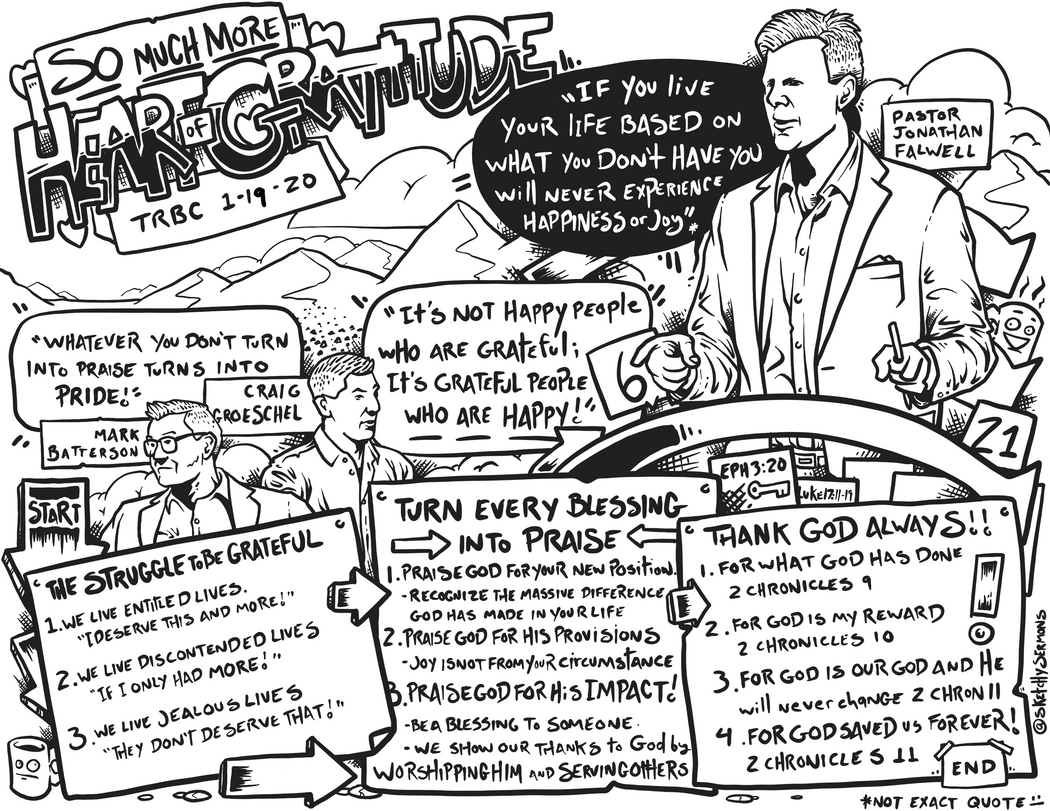 SO MUCH MORE
HEART OF GRATITUDE
TRBC 1-19-20
"IF YOU LIVE
YOUR LIFE BASED ON
WHAT YOU DON'T HAVE YOU
WILL NEVER EXPERIENCE
HAPPINESS OR JOY"*
PASTOR
JONATHAN
FALWELL
"WHATEVER YOU DON'T TURN
INTO PRAISE TURNS INTO
PRIDE!"
CRAIG
GROESCHEL
MARK
BATTERSON
"IT'S NOT HAPPY PEOPLE
WHO ARE GRATEFUL;
IT'S GRATEFUL PEOPLE
WHO ARE HAPPY!"
6
21
EPH 3:20
LUKE 17:11-19
START
THE STRUGGLE TO BE GRATEFUL
1. WE LIVE ENTITLED LIVES.
"I DESERVE THIS AND MORE!"
2. WE LIVE DISCONTENDED LIVES
"IF I ONLY HAD MORE!"
3. WE LIVE JEALOUS LIVES
"THEY DON'T DESERVE THAT!"
TURN EVERY BLESSING
INTO PRAISE
1. PRAISE GOD FOR YOUR NEW POSITION.
- RECOGNIZE THE MASSIVE DIFFERENCE
GOD HAS MADE IN YOUR LIFE
2. PRAISE GOD FOR HIS PROVISIONS
- JOY IS NOT FROM YOUR CIRCUMSTANCE
3. PRAISE GOD FOR HIS IMPACT!
- BE A BLESSING TO SOMEONE.
- WE SHOW OUR THANKS TO GOD by
WORSHIPPING HIM AND SERVING OTHERS
THANK GOD ALWAYS!!
1. FOR WHAT GOD HAS DONE
2 CHRONICLES 9
2. FOR GOD IS MY REWARD
2 CHRONICLES 10
3. FOR GOD IS OUR GOD AND HE
will never change 2 CHRON 11
4. FOR GOD SAVED US FOREVER!
2 CHRONICLES 11
END
@SKETCHYSERMONS
*NOT EXACT QUOTE